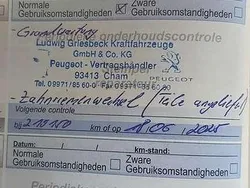 Normale
Gebruiksomstandigheden
Zware
Gebruiksomstandigheden
onderhoudscontrole
Ludwig Griesbeck Kraftfahrzeuge
GmbH & Co. KG
Peugeot - Vertragshändler
93413 Cham
PEUGEOT
Zahnriemenwechsel (Teile
Volgende controle
bij km of op 18.06.2025
Datum:
km-stand:
Normale
Gebruiksomstandigheden
Zware
Gebruiksomstandigheden